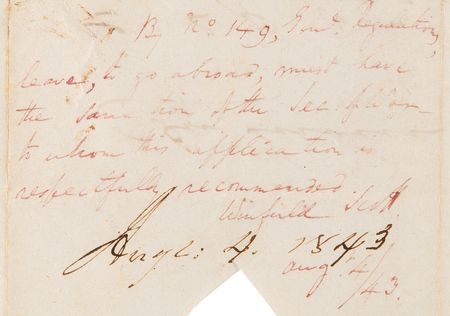 By No. 149, Genl. Regulations,
leave, to go abroad, must have
the sanction of the Sec. of War
to whom this application is
respectfully recommended.
Winfield Scott.
Augt: 4. 1843
Aug. 4/
/43.